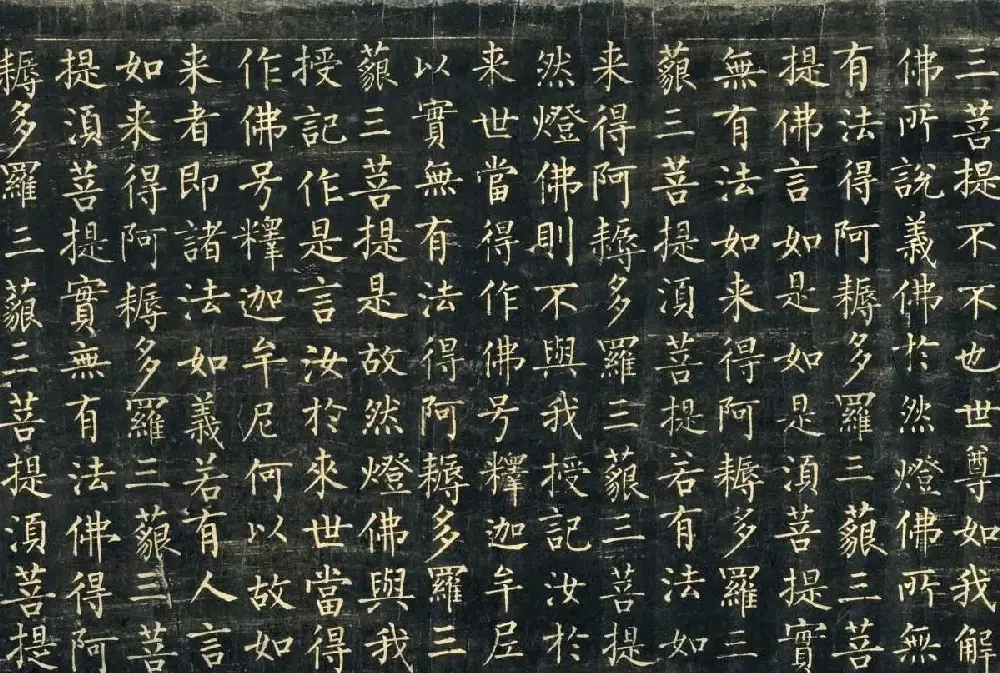 三菩提不不也世尊如我解
佛所說義佛於然燈佛所無
有法得阿耨多羅三藐三菩
提佛言如是如是湏菩提實
無有法如来得阿耨多羅三
藐三菩提湏菩提若有法如
来得阿耨多羅三藐三菩提
然燈佛則不與我授記汝於
来世當得作佛号釋迦牟尼
以實無有法得阿耨多羅三
藐三菩提是故然燈佛與我
授記作是言汝於來世當得
作佛号釋迦牟尼何以故如
来者即諸法如義若有人言
如来得阿耨多羅三藐三菩
提湏菩提實無有法佛得阿
耨多羅三藐三菩提湏菩提